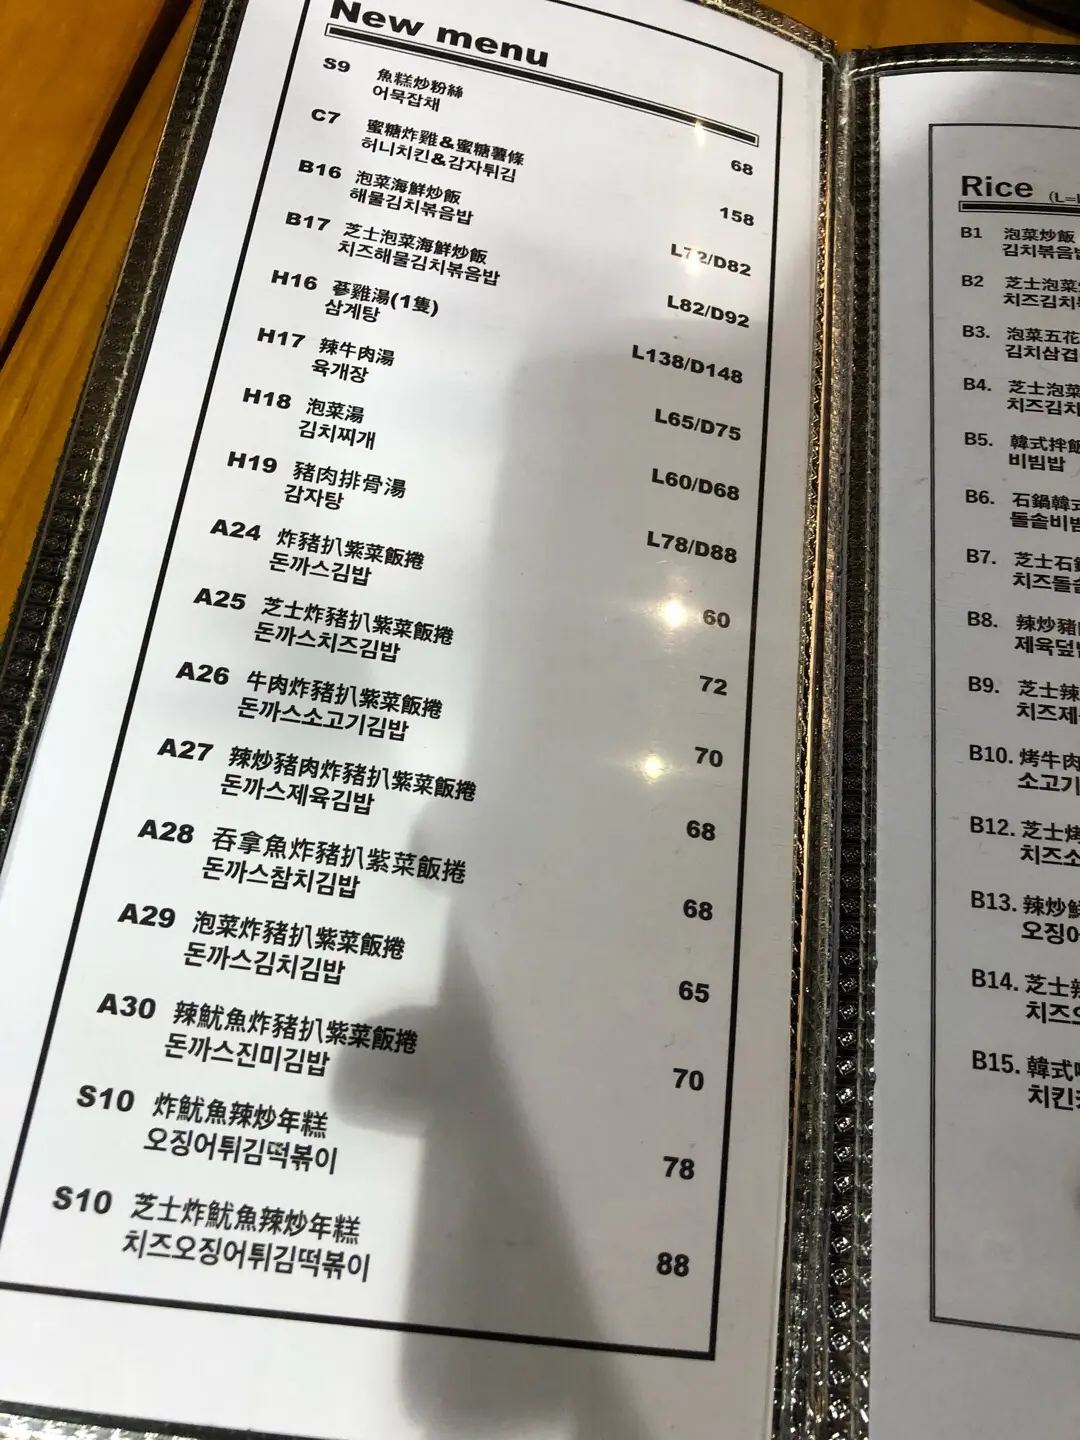 New menu
S9 魚糕炒粉絲
어묵잡채
68
C7 蜜糖炸雞&蜜糖薯條
허니치킨&감자튀김
158
B16 泡菜海鮮炒飯
해물김치볶음밥
L72/D82
B17 芝士泡菜海鮮炒飯
치즈해물김치볶음밥
L82/D92
H16 蔘雞湯(1隻)
삼계탕
L138/D148
H17 辣牛肉湯
육개장
L65/D75
H18 泡菜湯
김치찌개
L60/D68
H19 豬肉排骨湯
감자탕
L78/D88
A24 炸豬扒紫菜飯捲
돈까스김밥
60
A25 芝士炸豬扒紫菜飯捲
돈까스치즈김밥
72
A26 牛肉炸豬扒紫菜飯捲
돈까스소고기김밥
70
A27 辣炒豬肉炸豬扒紫菜飯捲
돈까스제육김밥
68
A28 吞拿魚炸豬扒紫菜飯捲
돈까스참치김밥
68
A29 泡菜炸豬扒紫菜飯捲
돈까스김치김밥
65
A30 辣魷魚炸豬扒紫菜飯捲
돈까스진미김밥
70
S10 炸魷魚辣炒年糕
오징어튀김떡볶이
78
S10 芝士炸魷魚辣炒年糕
치즈오징어튀김떡볶이
88
Rice (L=
B1 泡菜炒飯
김치볶음밥
B2 芝士泡菜
치즈김치
B3. 泡菜五花
김치삼겹
B4. 芝士泡菜
치즈김치
B5. 韓式拌飯
비빔밥
B6. 石鍋韓式
돌솥비빔
B7. 芝士石鍋
치즈돌솥
B8. 辣炒豬肉
제육덮밥
B9. 芝士辣
치즈제
B10. 烤牛肉
소고기
B12. 芝士烤
치즈소
B13. 辣炒魷
오징어
B14. 芝士辣
치즈오
B15. 韓式
치킨